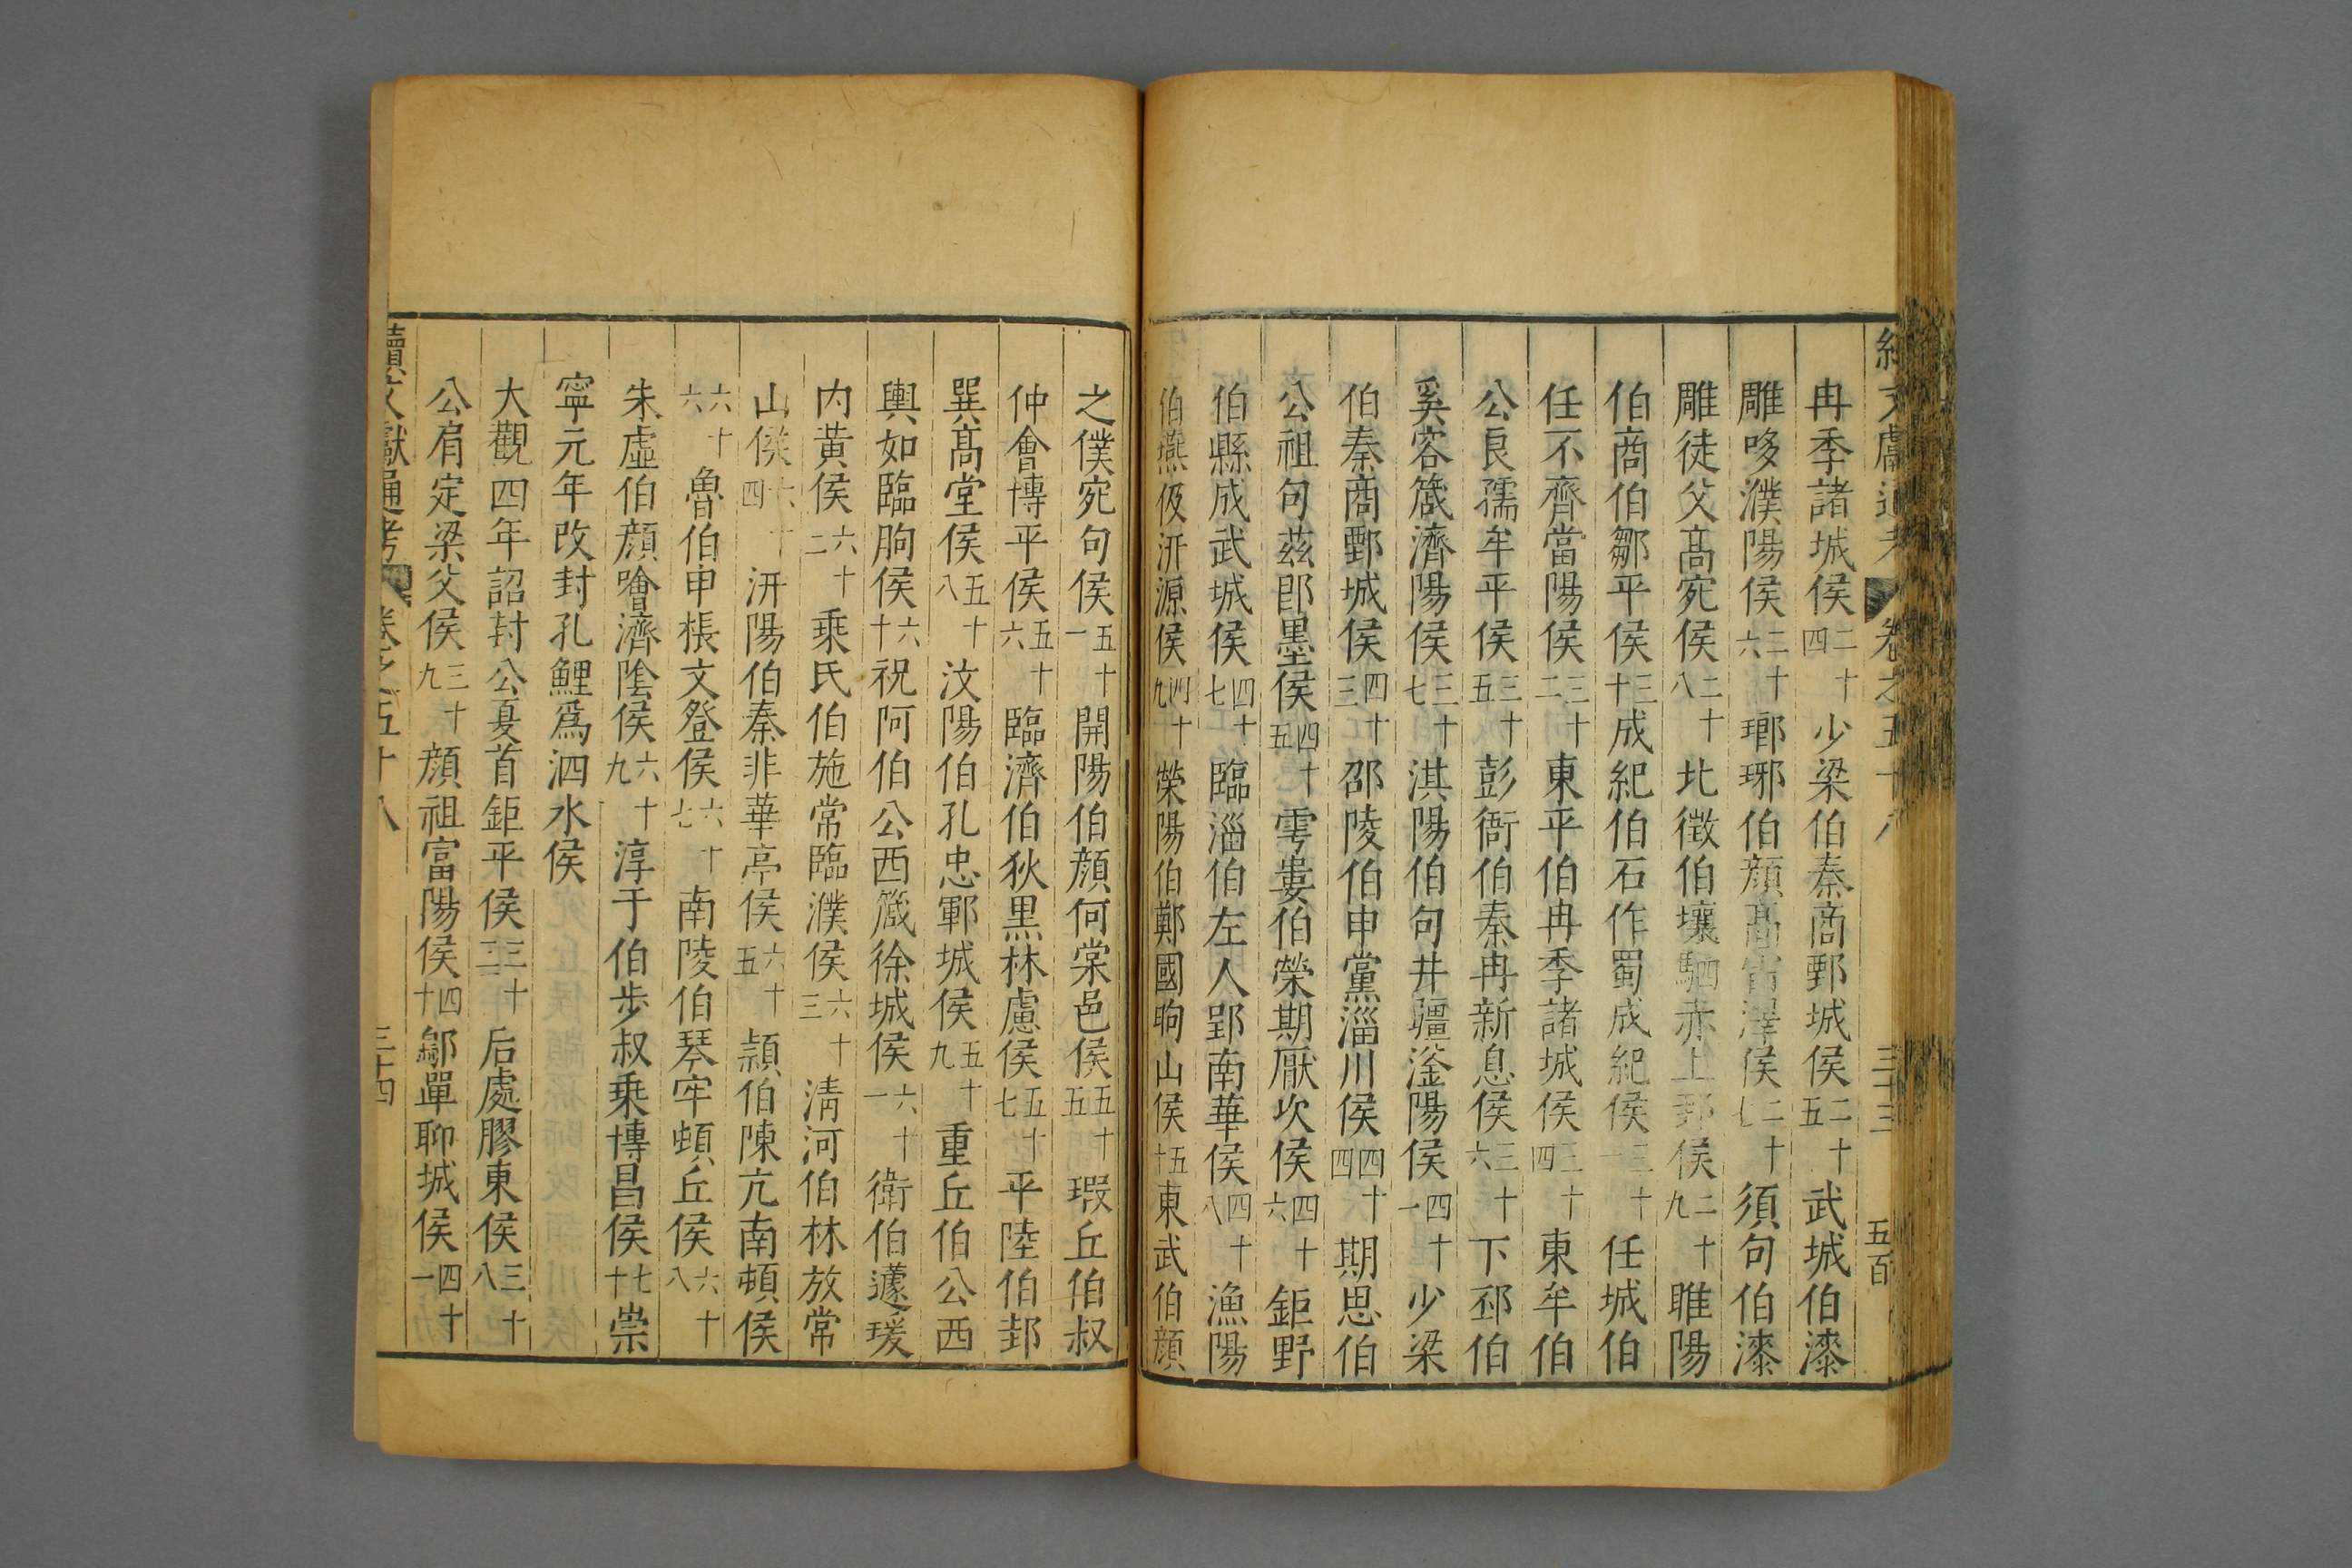 續文獻通考 卷之五十八 三十三 五百
冉季諸城侯二十四少梁伯秦商鄄城侯二十五武城伯漆
雕哆濮陽侯二十六瑯琊伯顔髙雷澤侯二十七須句伯漆
雕徒父髙宛侯二十八北徵伯壤駟赤上邽侯二十九睢陽
伯商伯鄒平侯三十成紀伯石作蜀成紀侯三十一任城伯
任不齊當陽侯三十二東平伯冉季諸城侯三十四東牟伯
公良孺牟平侯三十五彭衙伯秦冉新息侯三十六下邳伯
奚容箴濟陽侯三十七淇陽伯句井疆滏陽侯四十一少梁
伯秦商鄄城侯四十三邵陵伯申黨淄川侯四十四期思伯
公祖句茲卽墨侯四十五雩婁伯榮期厭次侯四十六鉅野
伯縣成武城侯四十七臨淄伯左人郢南華侯四十八漁陽
伯燕伋汧源侯四十九榮陽伯鄭國昫山侯五十東武伯顔
之僕宛句侯五十一開陽伯顔何棠邑侯五十五瑕丘伯叔
仲會博平侯五十六臨濟伯狄黑林慮侯五十七平陸伯邽
巽髙堂侯五十八汶陽伯孔忠鄆城侯五十九重丘伯公西
輿如臨朐侯六十祝阿伯公西箴徐城侯六十一衛伯蘧瑗
内黄侯六十二乗氏伯施常臨濮侯六十三淸河伯林放常
山侯六十四汧陽伯秦非華亭侯六十五頴伯陳亢南頓侯
六十六魯伯申棖文登侯六十七南陵伯琴牢頓丘侯六十八
朱虛伯顔噲濟陰侯六十九淳于伯步叔乗博昌侯七十崇
寧元年改封孔鯉爲泗水侯
大觀四年詔封公夏首鉅平侯三十三后處膠東侯三十八
公肩定梁父侯三十九顔祖富陽侯四十鄔單聊城侯四十一
續文獻通考 卷之五十八 三十四